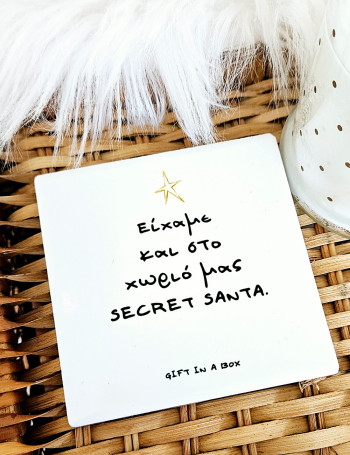 Είχαμε
και στο
χωριό μας
SECRET SANTA.
GIFT IN A BOX